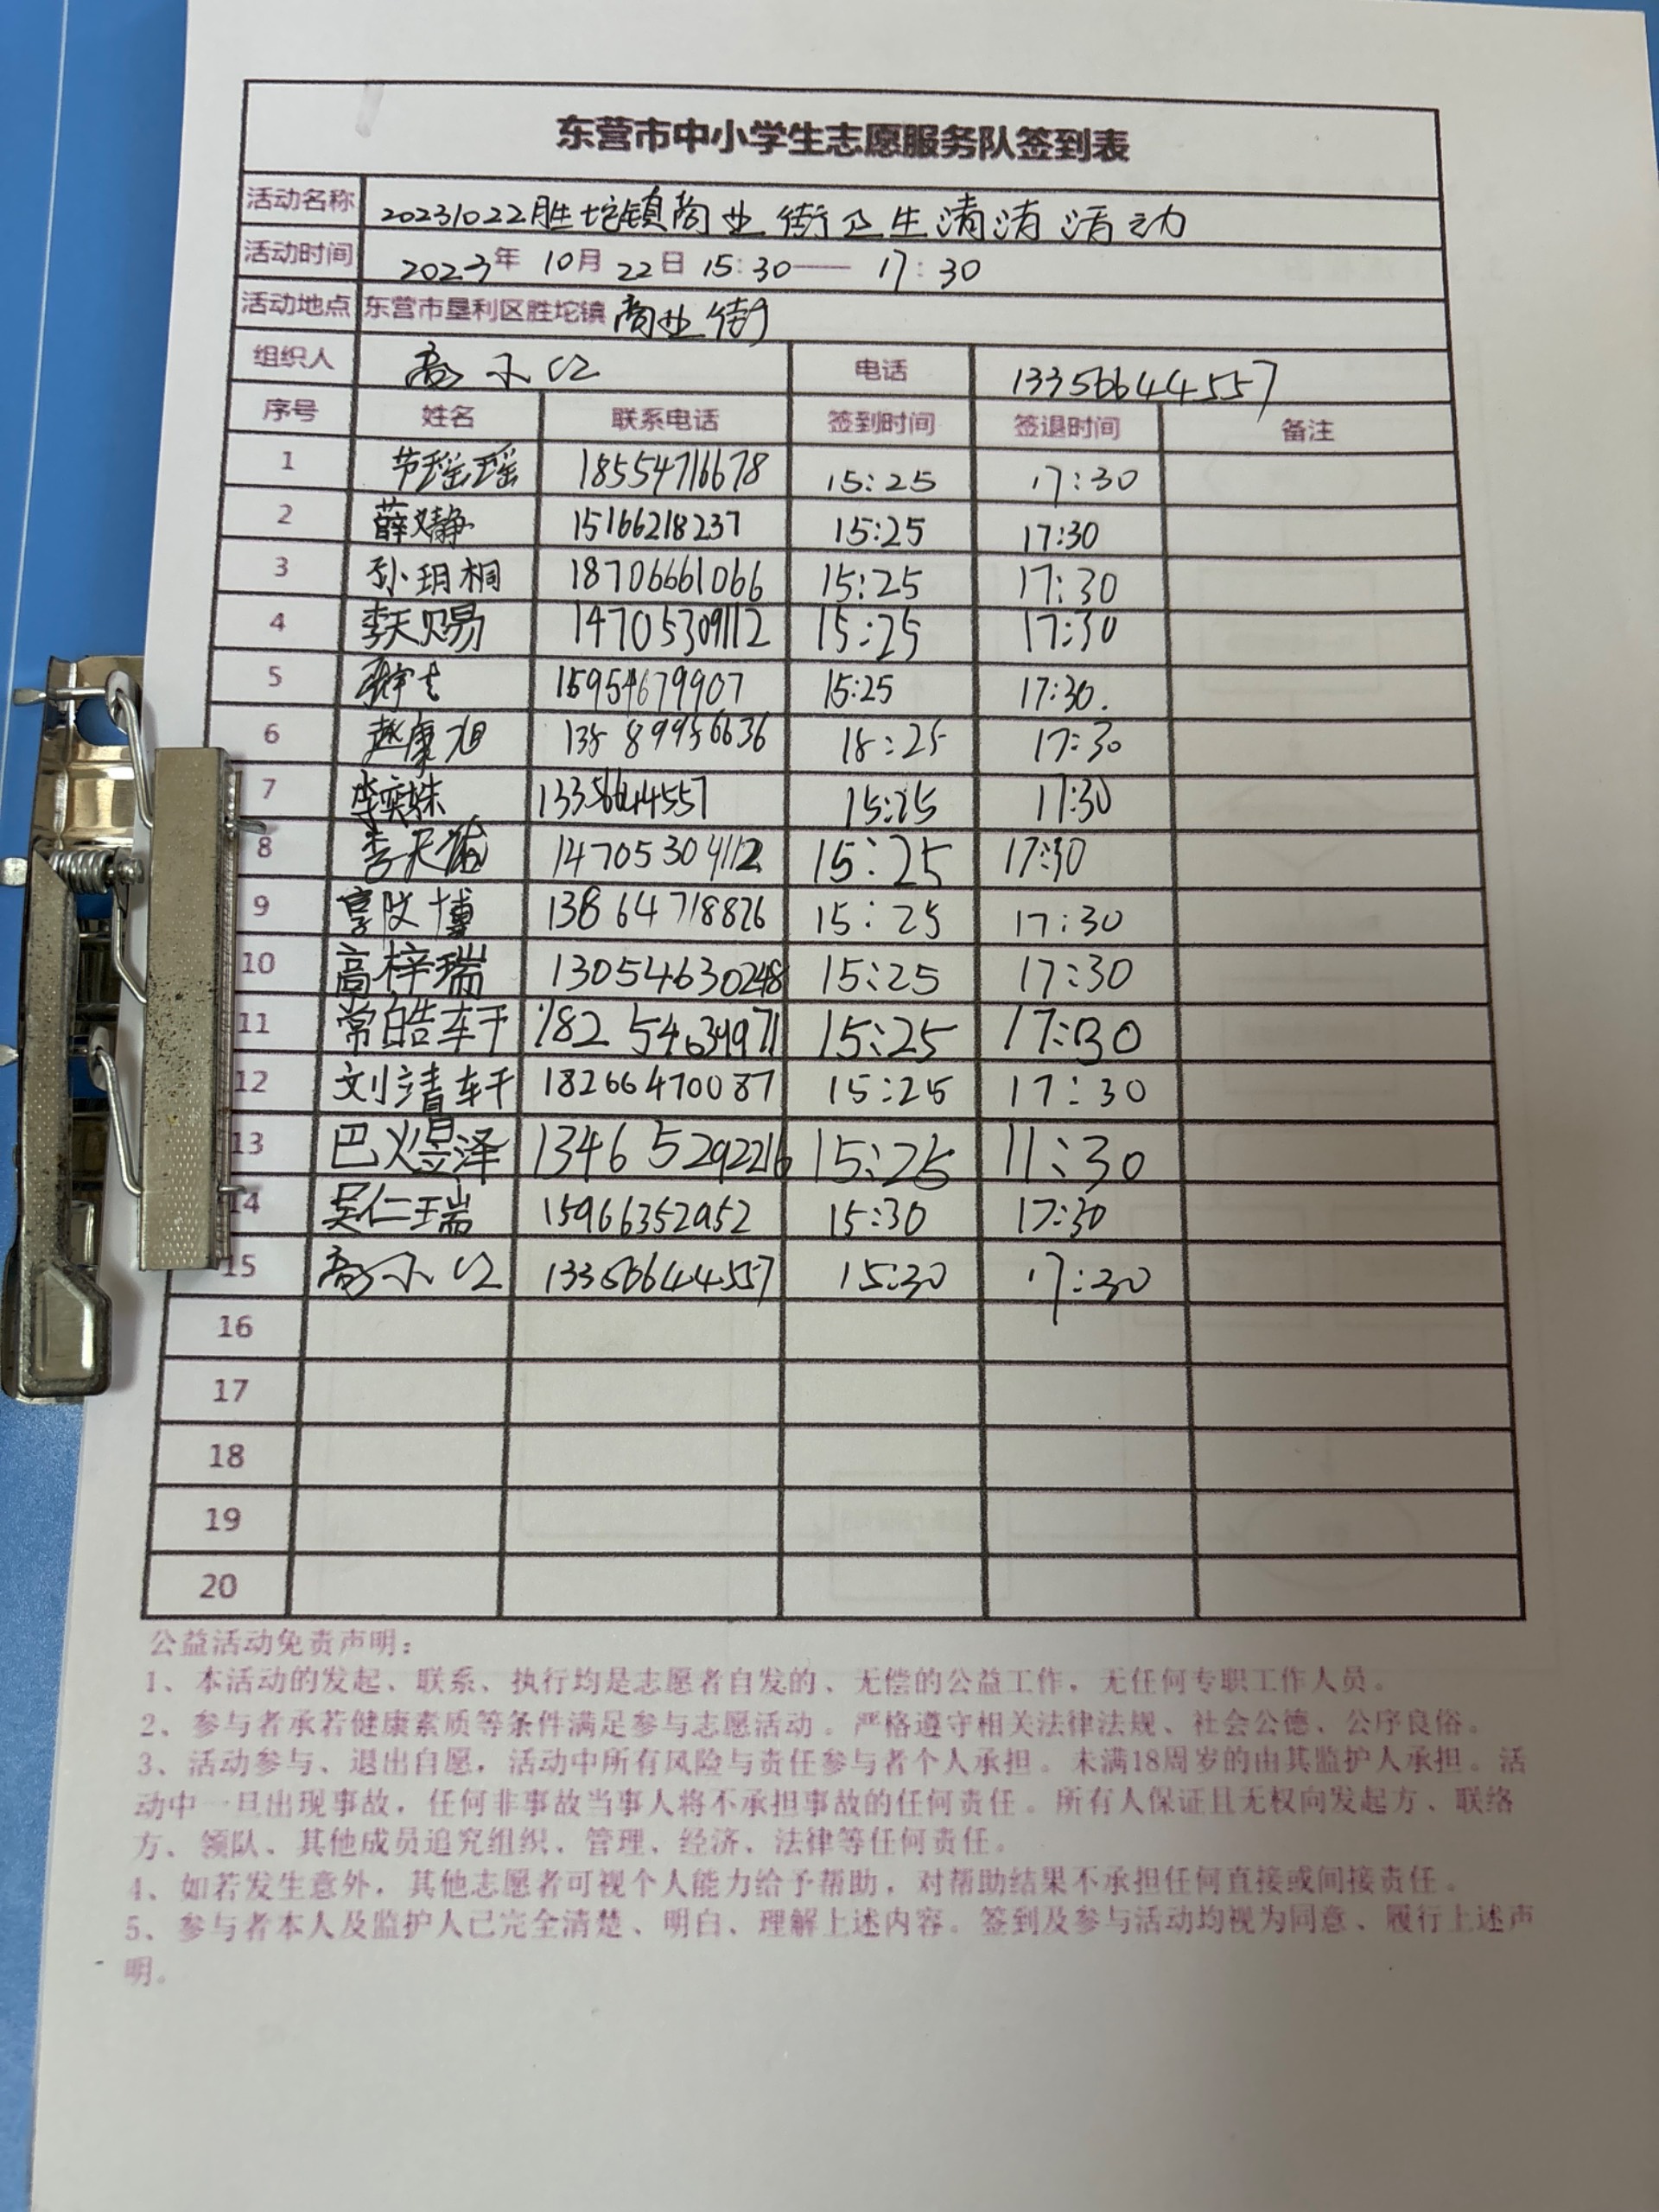 东营市中小学生志愿服务队签到表
活动名称 20231022胜坨镇商业街卫生清洁活动
活动时间 2023年 10月 22日 15:30—— 17:30
活动地点 东营市垦利区胜坨镇 商业街
组织人 电话 13356644557
序号 姓名 联系电话 签到时间 签退时间 备注
1 节瑶瑶 18554716678 15:25 17:30
2 薛文静 15166218237 15:25 17:30
3 孙玥桐 18706661066 15:25 17:30
4 李天赐 14705309112 15:25 17:30
5 15954679907 15:25 17:30.
6 赵康旭 17:30
7 李奕姝 13356644557 15:25 17:30
8 李天 15:25 17:30
9 博 13864718826 15:25 17:30
10 高梓瑞 13054630248 15:25 17:30
11 常皓轩 18254634971 15:25 17:30
12 刘清轩 18266470087 15:25 17:30
13 巴煜泽 13465292216 15:25 11:30
14 吴仁瑞 15966352952 15:30 17:30
15 13356644557 15:30 17:30
16
17
18
19
20
公益活动免责声明：
1、本活动的发起、联系、执行均是志愿者自发的、无偿的公益工作，无任何专职工作人员。
2、参与者承若健康素质等条件满足参与志愿活动。严格遵守相关法律法规、社会公德、公序良俗。
3、活动参与、退出自愿，活动中所有风险与责任参与者个人承担。未满18周岁的由其监护人承担。活
动中一旦出现事故，任何非事故当事人将不承担事故的任何责任。所有人保证且无权向发起方、联络
方、领队、其他成员追究组织、管理、经济、法律等任何责任。
4、如若发生意外，其他志愿者可视个人能力给予帮助，对帮助结果不承担任何直接或间接责任。
5、参与者本人及监护人已完全清楚、明白、理解上述内容。签到及参与活动均视为同意、履行上述声
明。